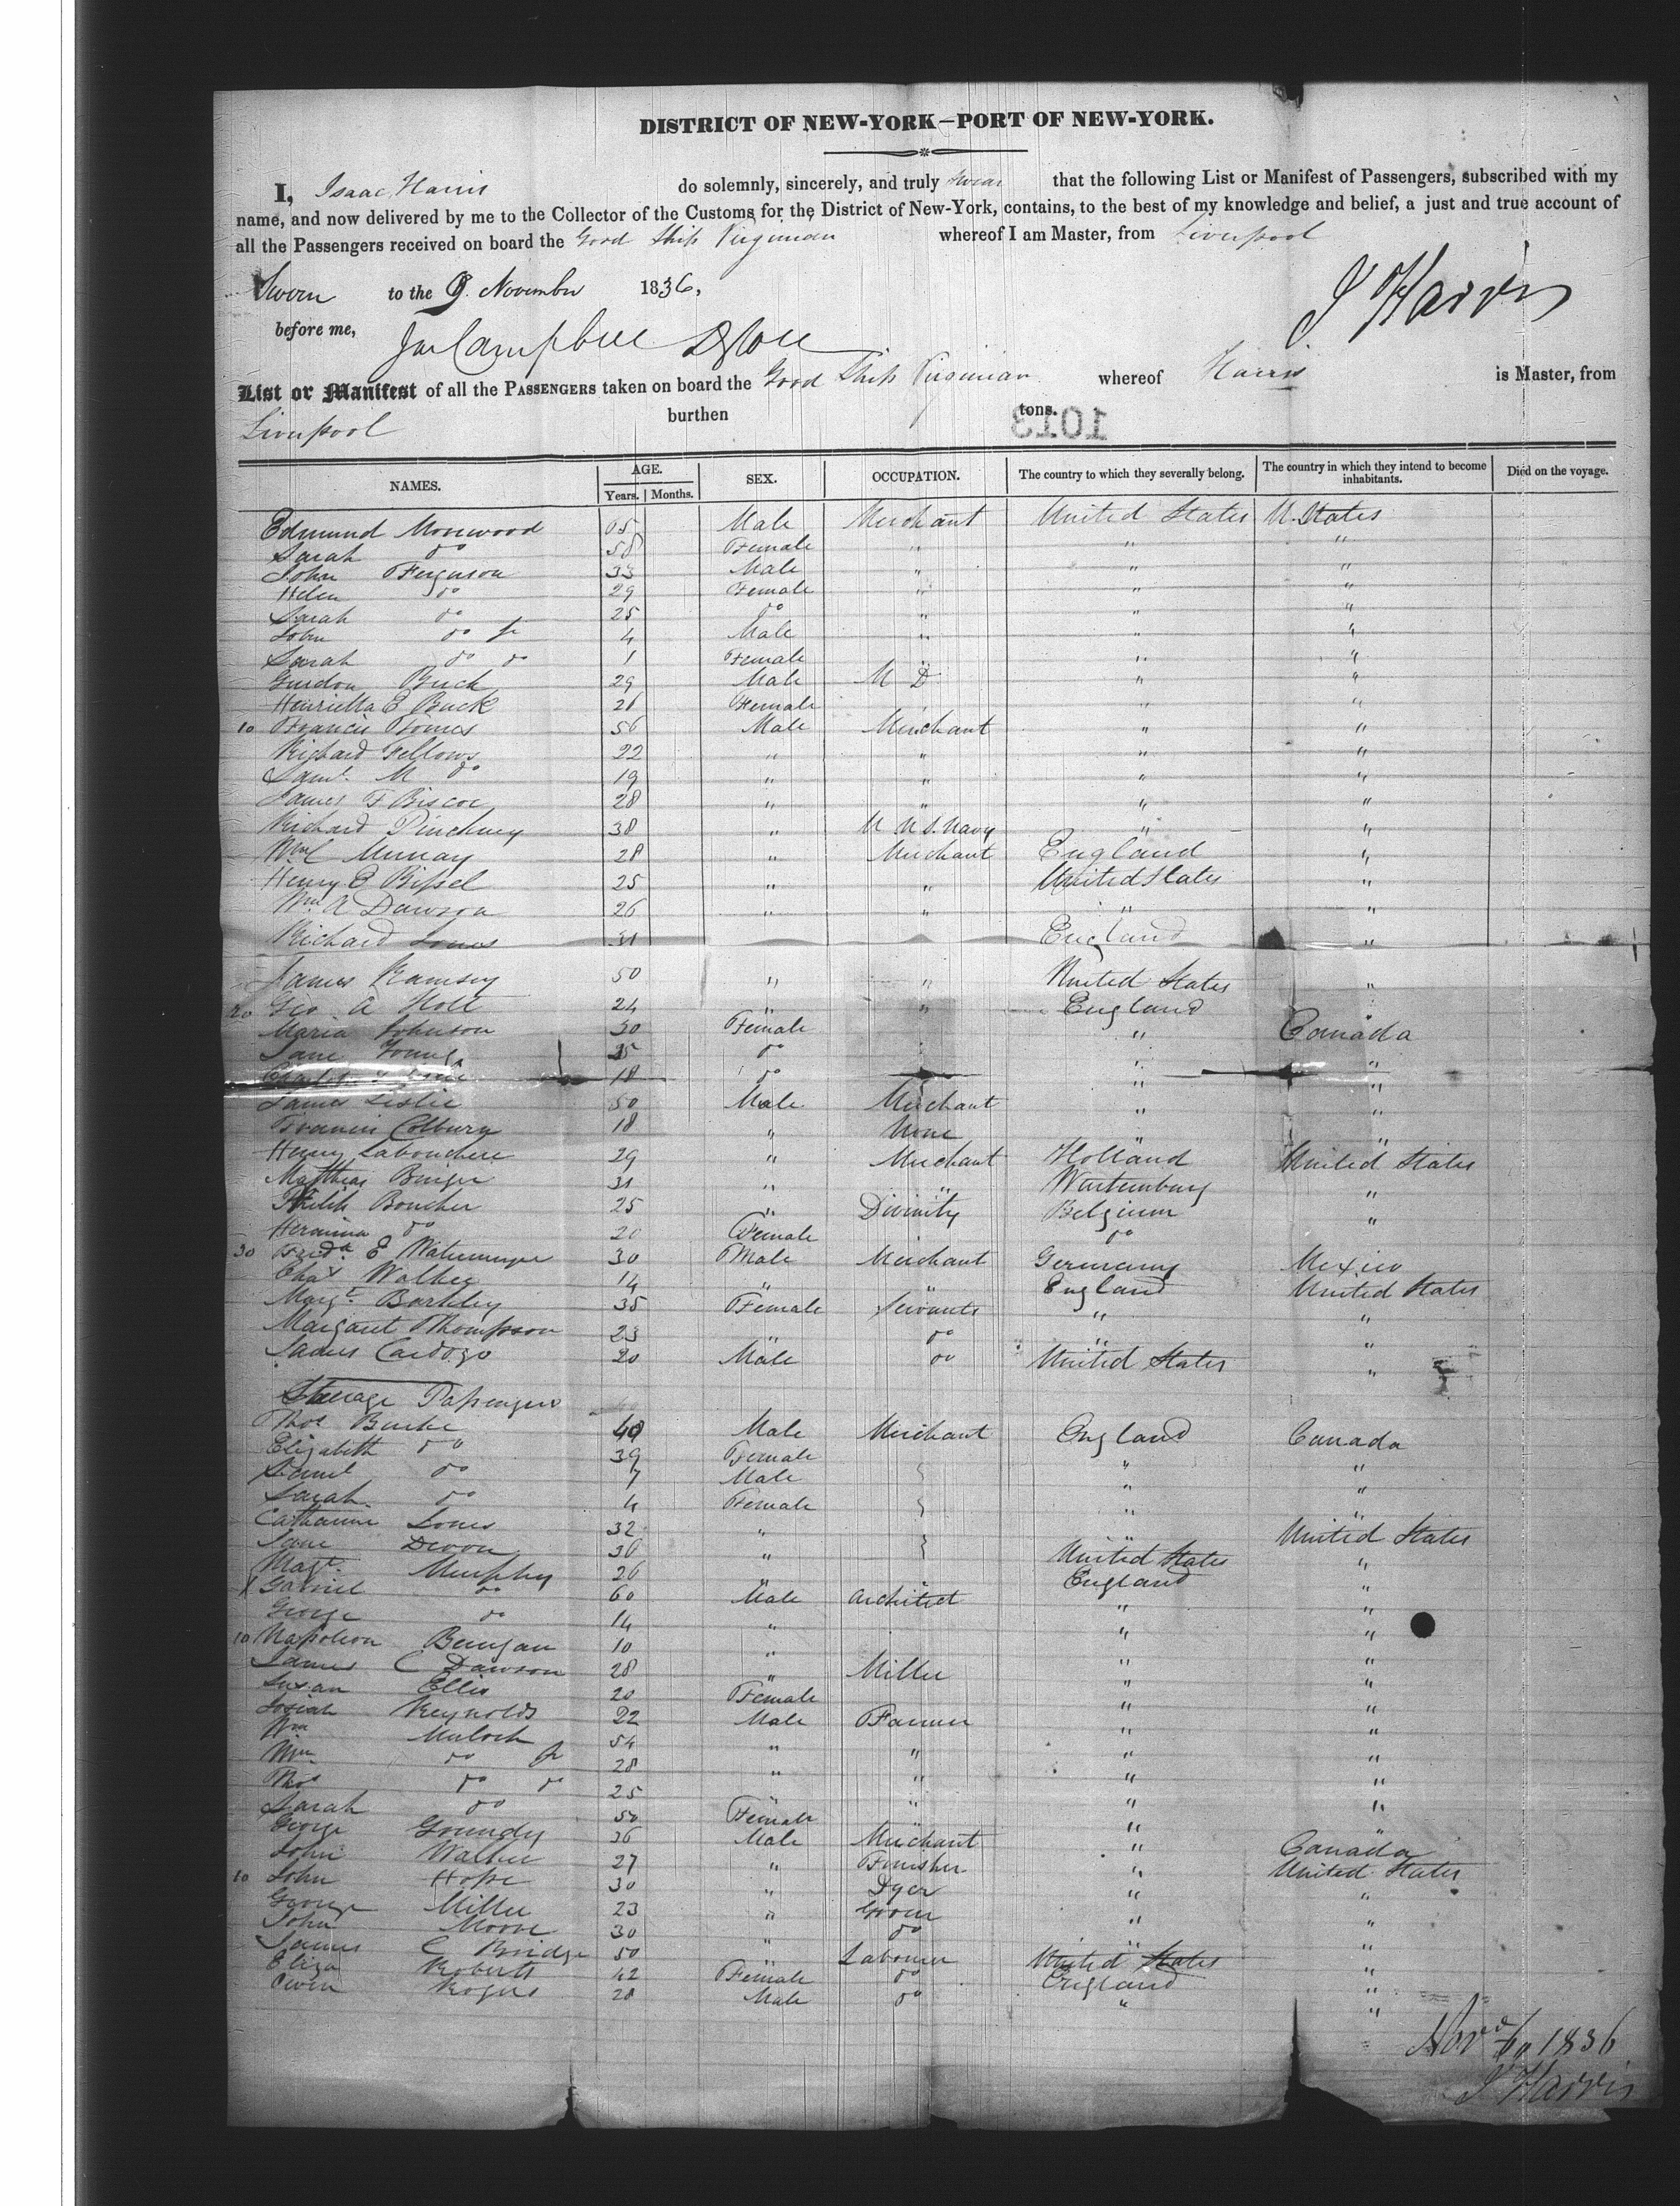 DISTRICT OF NEW-YORK—PORT OF NEW-YORK.
I, Isaac Harris do solemnly, sincerely, and truly swear that the following List or Manifest of Passengers, subscribed with my
name, and now delivered by me to the Collector of the Customs for the District of New-York, contains, to the best of my knowledge and belief, a just and true account of
all the Passengers received on board the Good Ship Virginian whereof I am Master, from Liverpool
Sworn to the 9 November 1836,
J Harris
before me, Campbell
List or Manifest of all the PASSENGERS taken on board the Good Ship Virginian whereof Harris is Master, from
Liverpool burthen tons.
1013
NAMES. AGE. Years. Months. SEX. OCCUPATION. The country to which they severally belong. The country in which they intend to become inhabitants. Died on the voyage.
Edmund Morewood 65 Male Merchant United States U. States
Sarah do 58 Female " " "
John Ferguson 33 Male " " "
Helen do 29 Female " " "
Sarah do 25 do " " "
John do Jr 4 Male " " "
Sarah do do 1 Female " " "
Gurdon Buck 29 Male M D " "
Henrietta E Buck 21 Female " "
10 Francis Tomes 56 Male Merchant " "
Richard Fellows 22 " " " "
Saml. M do 19 " " " "
James F Biscoe 28 " " " "
Richard Pinckney 38 " U.S. Navy " "
Wm C Murray 28 " Merchant England "
Henry E Bissel 25 " " United States "
Wm A Dawson 26 " " " "
Richard Jones 31 England "
James Ramsey 50 " " United States "
20 Geo A Holt 24 " " England "
Maria Johnson 30 Female " Canada
Jane Young 25 do " "
18 do " "
James Leslie 50 Male Merchant " "
Francis Colburn 18 " None " "
Henry Labouchere 29 " Merchant Holland United States
Matthias 31 " " Wurtemburg "
Boucher 25 " Divinity Belgium "
Hermina do 20 Female do
30 E Watermeyer 30 Male Merchant Germany Mexico
Chas Walker 14 " " England United States
Margt. Barkley 35 Female Servants " "
Margaret Thompson 23 " do " "
James Cardozo 20 Male do United States "
Steerage Passengers
Thos Burke 49 Male Merchant England Canada
Elizabeth do 39 Female " "
Saml do 7 Male " "
Sarah do 4 Female " "
Catharine Jones 32 " " United States
Jane Devon 36 " United States "
Magt. Murphy 26 " England "
X Gabriel do 60 Male Architect " "
George do 14 " " "
10 Napoleon 10 " " "
James C Dawson 28 " Miller " "
Susan Ellis 20 Female " "
Josiah Reynolds 22 Male Farmer " "
Wm Mulock 54 " " " "
Wm do Jr 28 " " " "
Thos do do 25 " " " "
Sarah do 50 Female " " "
George Groundy 36 Male Merchant " Canada
John Walker 27 " Finisher " United States
10 John Hope 30 " Dyer " "
George Miller 23 " Groom " "
John Moore 30 " do " "
James C Bridge 50 Labourer United States "
Eliza Roberts 42 Female do England "
Owen Rogers 28 Male do " "
1836
J Harris